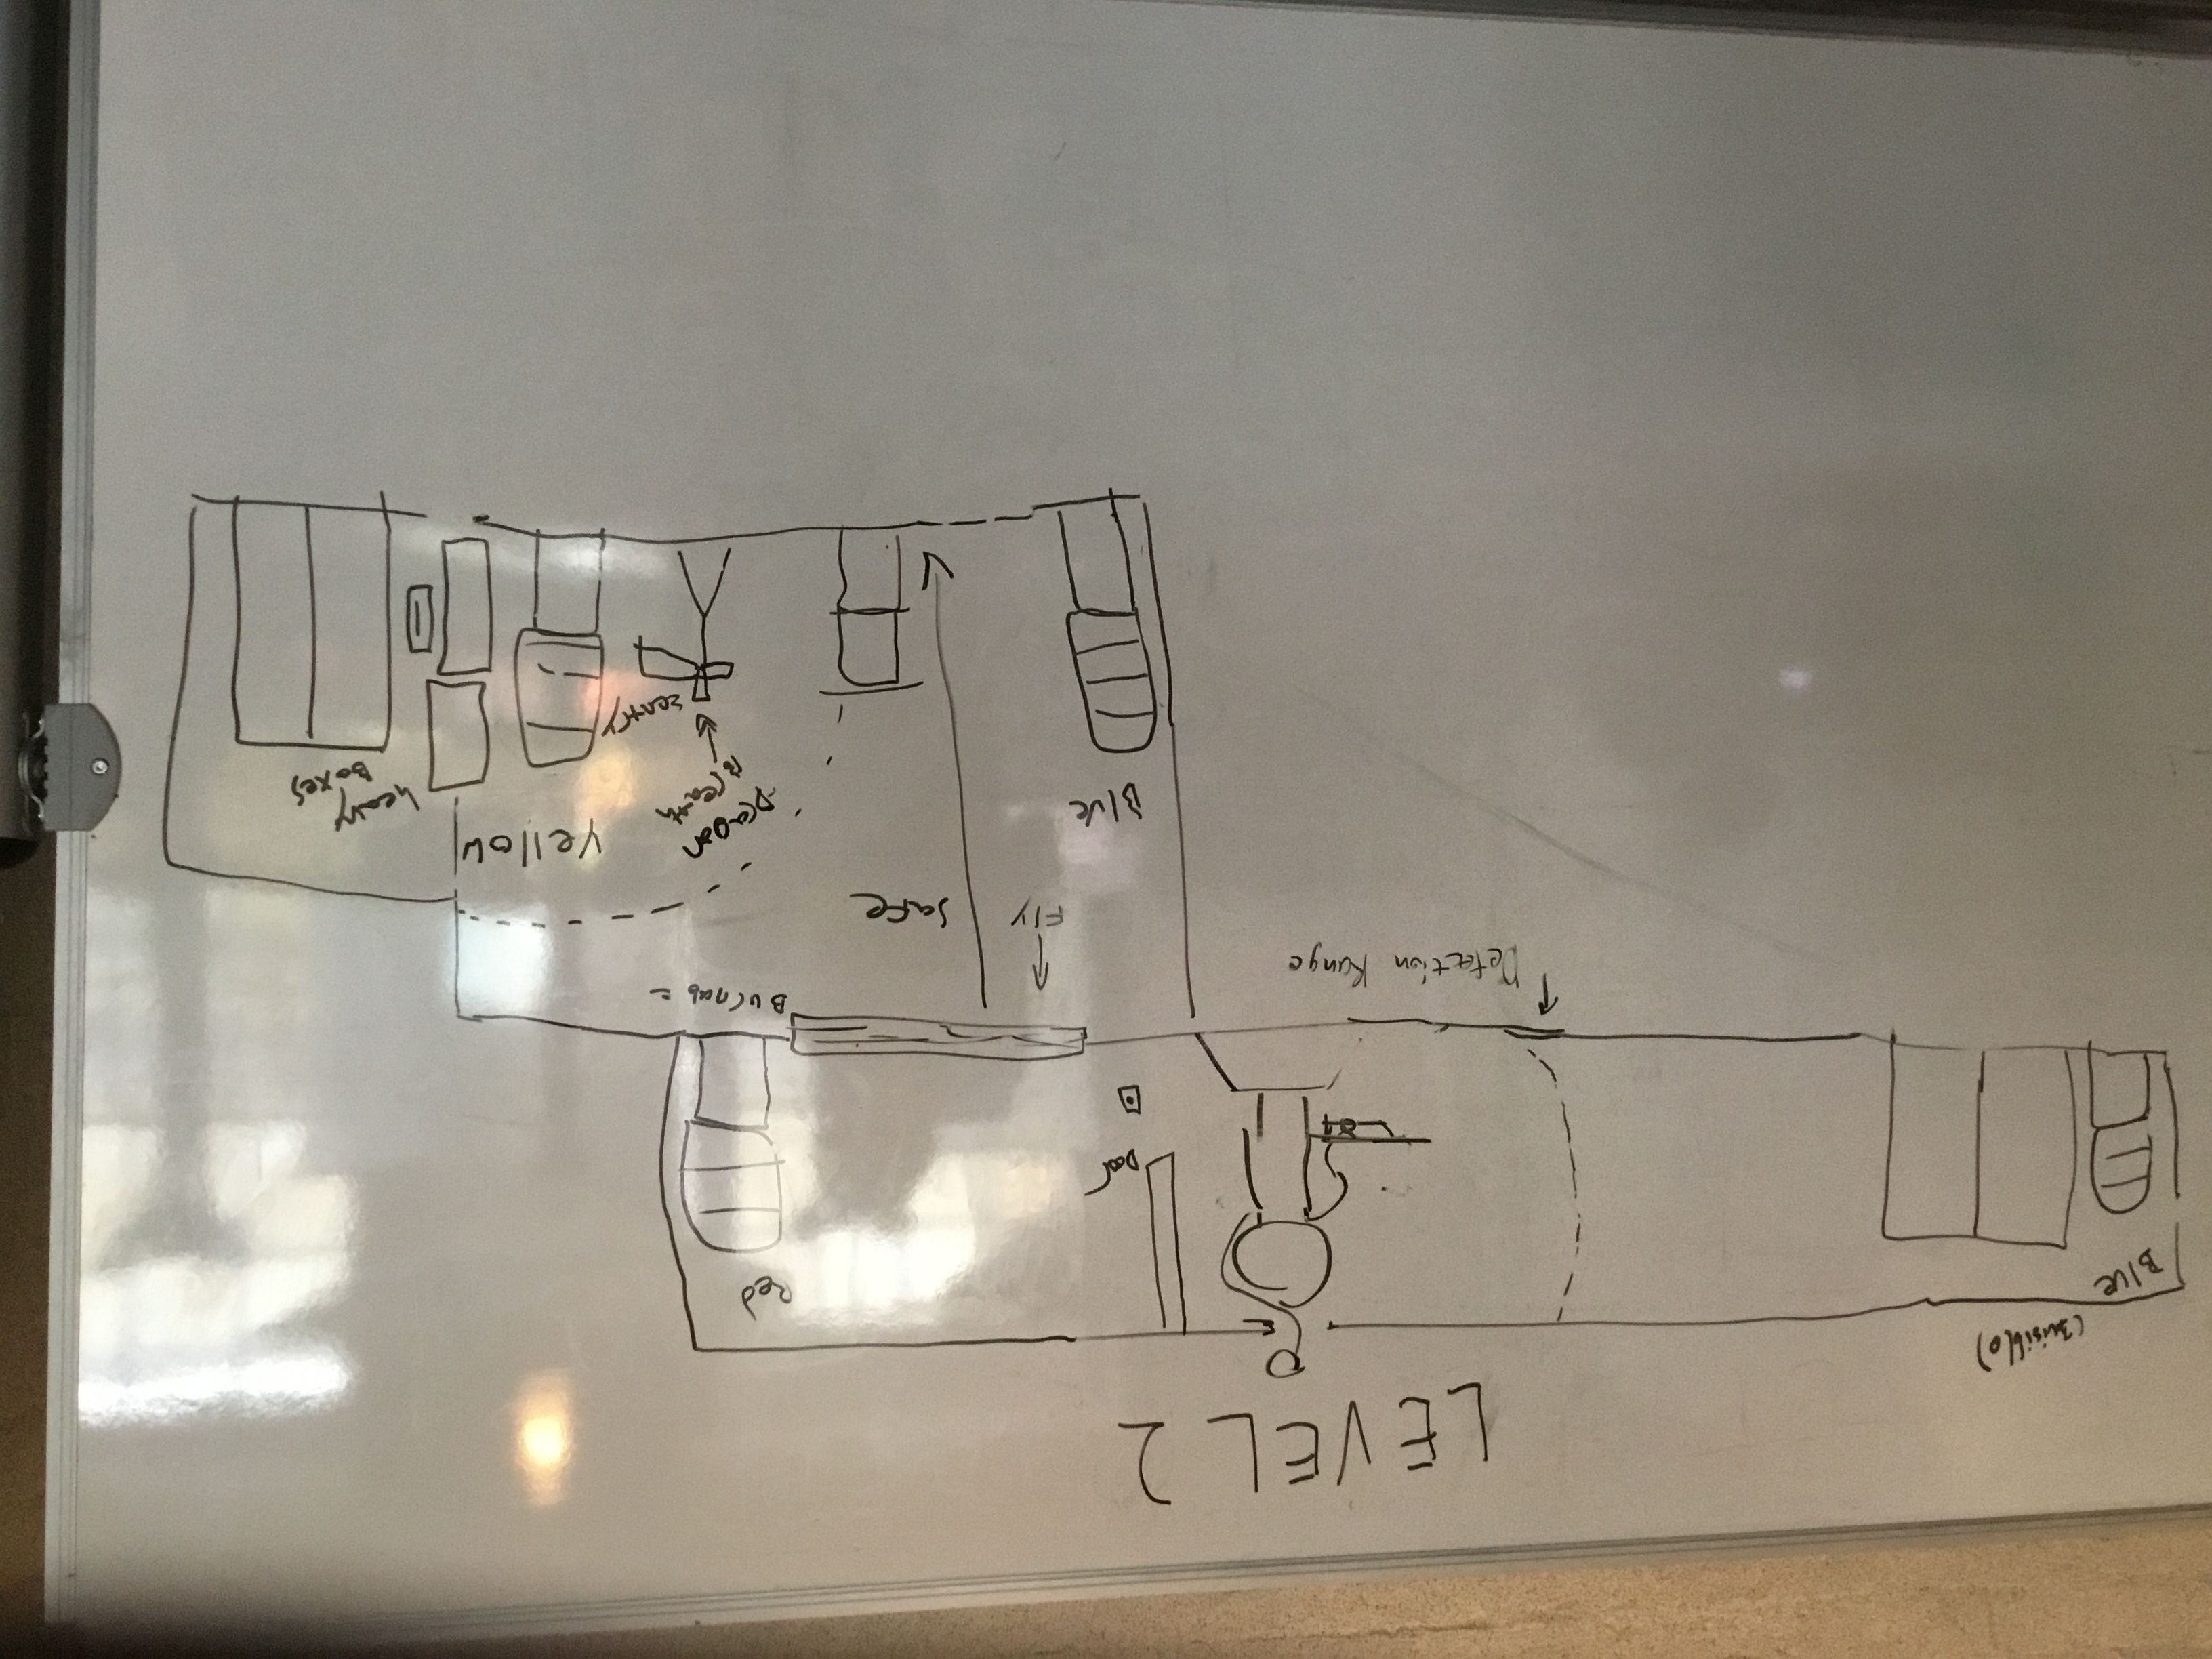 LEVEL 2
(Invisible)
Blue
Red
Door
Detection Range
Fly
Safe
Blue
Dragon
Breath
Sentry
Yellow
heavy
Boxes